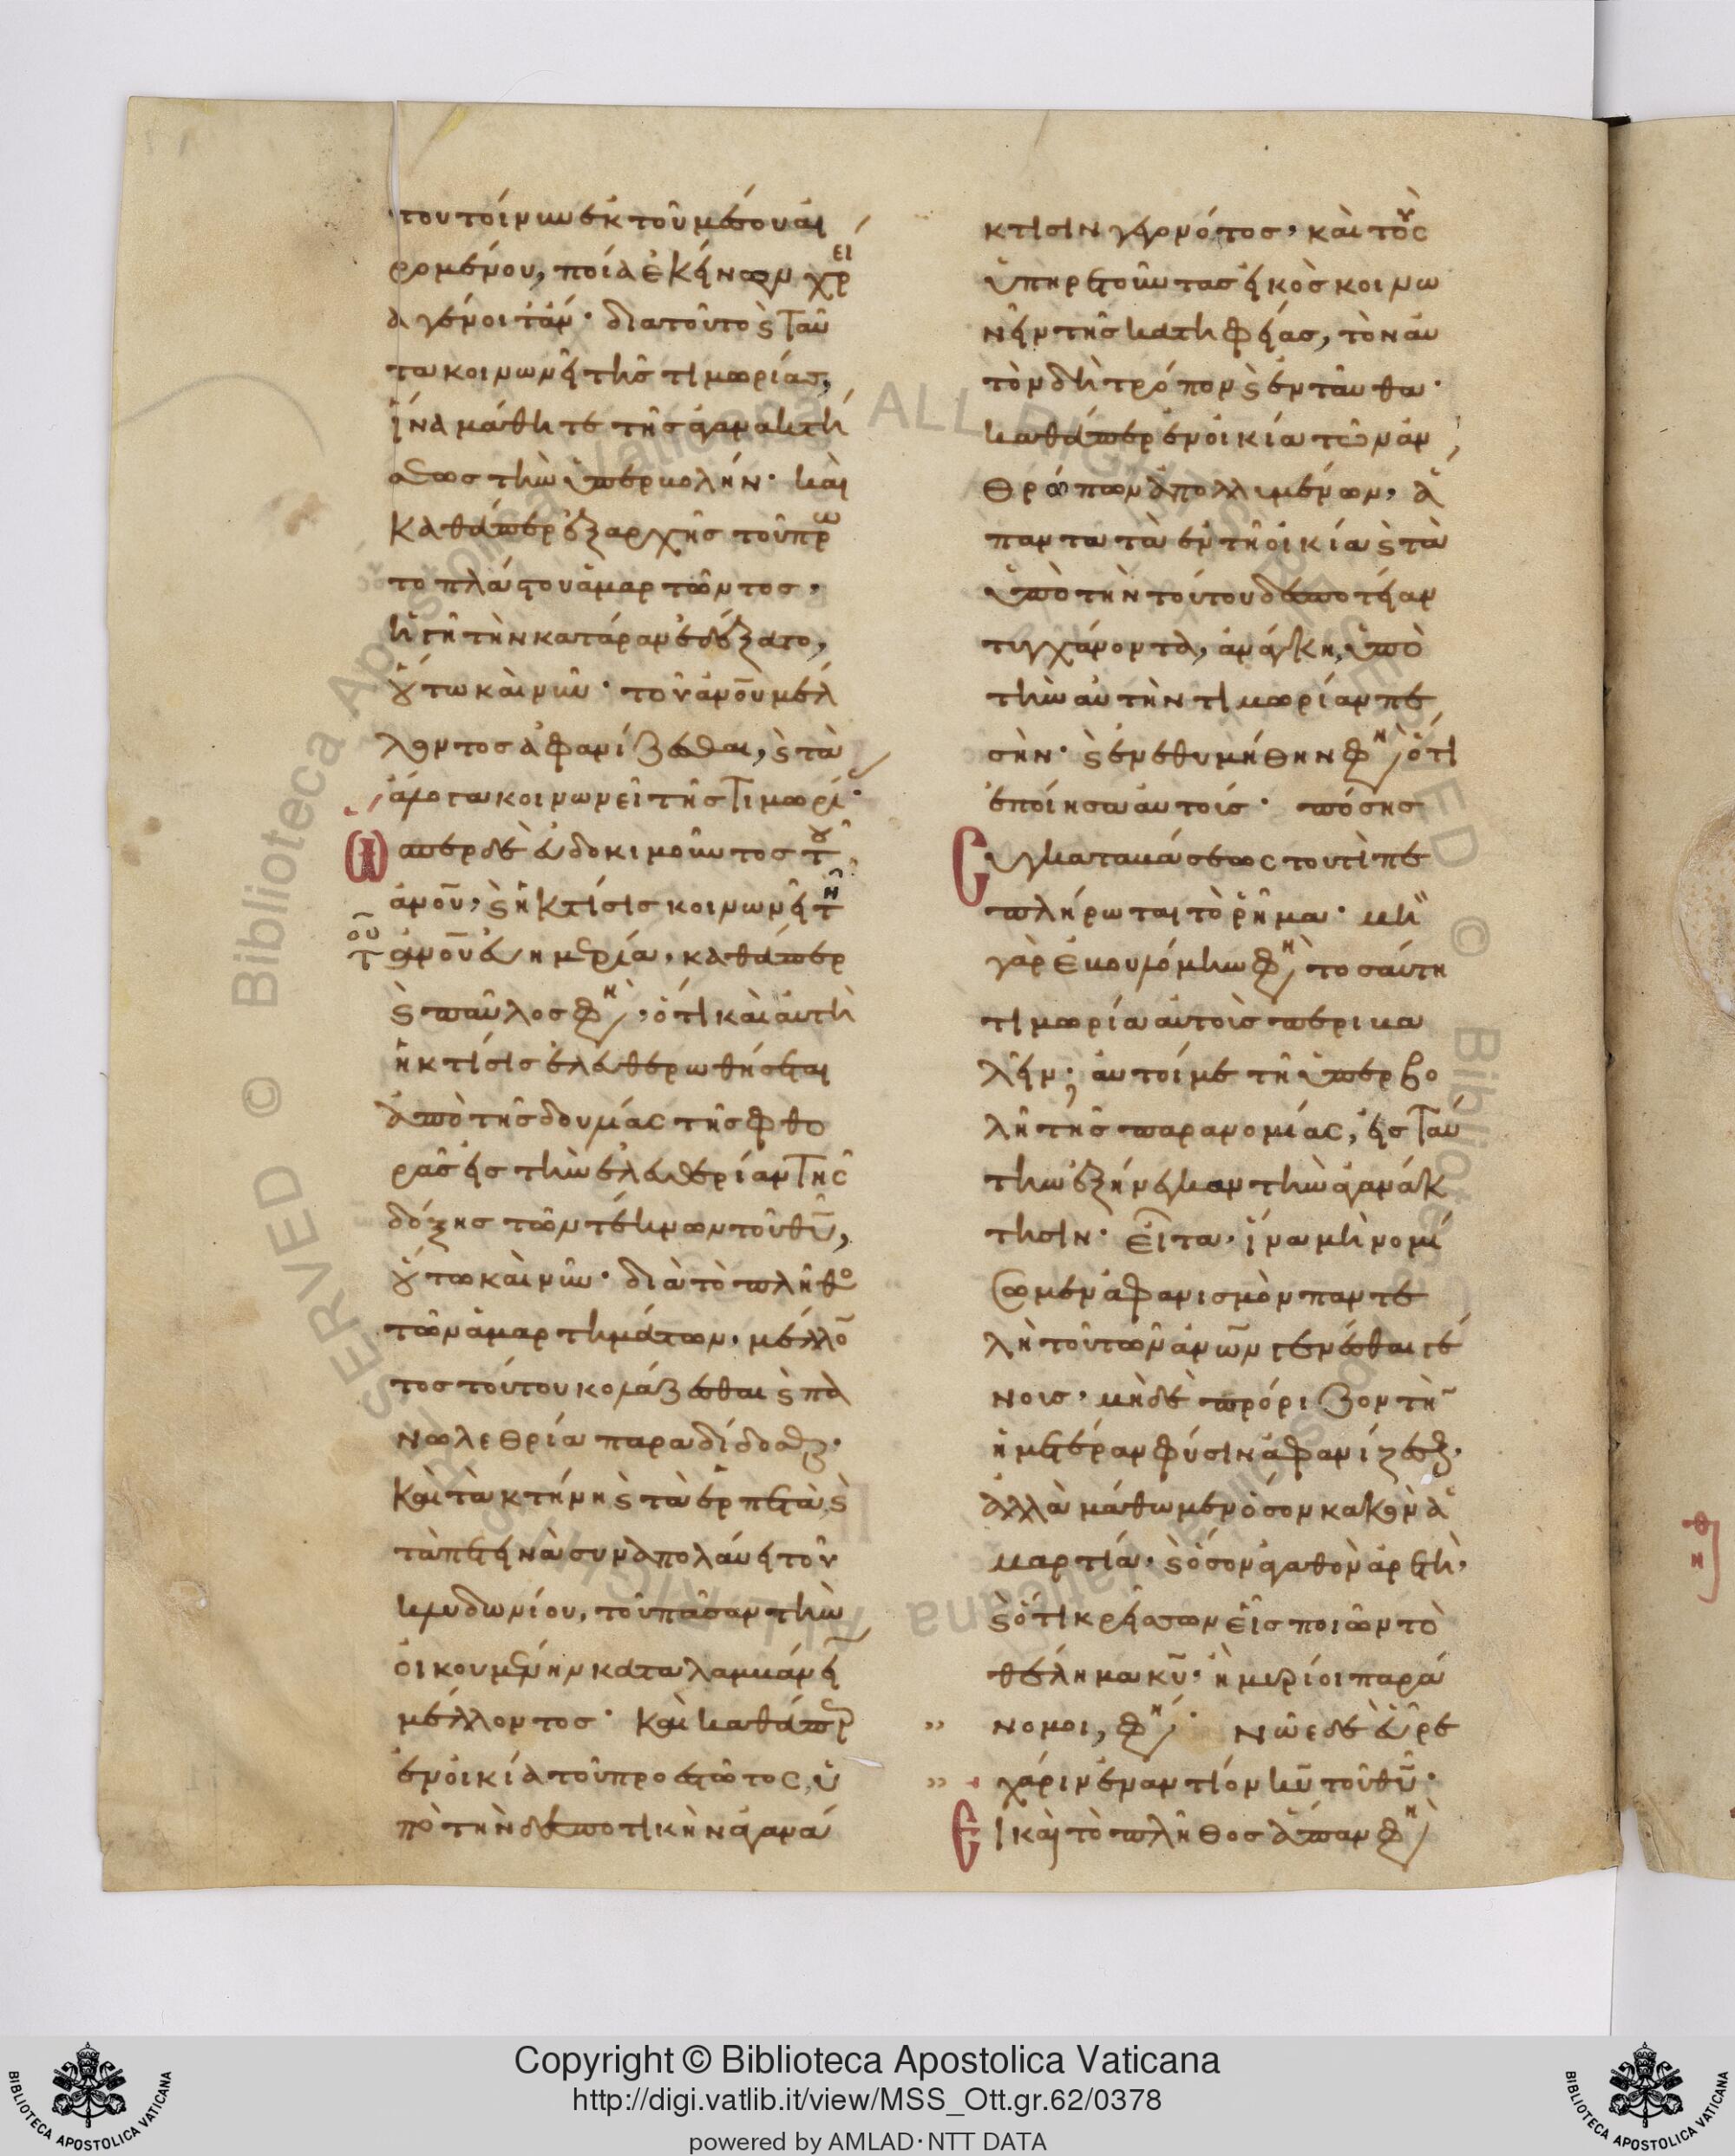 του τοίνυν ἐκ τοῦ μέσου αἰ
ρομένου, ποία ἐκείνων χρεί
α γένοιτ' ἄν· διατοῦτο καὶ ταῦ
τα κοινωνεῖ τῆς τιμωρίας,
ἵνα μάθητε τῆς ἀγανακτή
σεως τὴν ὑπερβολήν· καὶ
καθάπερ ἐξαρχῆς τοῦ πρω
τοπλάστου ἁμαρτῶντος,
ἡ γῆ τὴν κατάραν ἐδέξατο,
οὕτω καὶ νῦν· τοῦ ἀνου μέλ
λοντος ἀφανίζεσθαι, καὶ τὰ
ἄλογα κοινωνεῖ τῆς τιμωρί·
Ὥσπερ δὲ εὐδοκιμοῦντος τοῦ
ἀνου, καὶ ἡ κτίσις κοινωνεῖ τῆ
τοῦ ἀνου εὐημερία, καθάπερ
καὶ παῦλος φη, ὅτι καὶ αὐτὴ
ἡ κτίσις ἐλευθερωθήσεται
ἀπὸ τῆς δουλίας τῆς φθο
ρᾶς εἰς τὴν ἐλευθερίαν τῆς
δόξης τῶν τέκνων τοῦ θυ,
οὕτω καὶ νῦν· διὰ τὸ πλῆθο
τῶν ἁμαρτημάτων, μέλλο
τος τούτου κολάζεσθαι καὶ πα
νωλεθρία παραδίδοσθαι·
καὶ τὰ κτήνη καὶ τὰ ἑρπετὰ καὶ
τὰ πετεινὰ συναπολαύει τοῦ
κλυδωνίου, τοῦ πᾶσαν τὴν
οἰκουμένην καταλαμβάνειν
μέλλοντος· Καὶ καθάπερ
ἐν οἰκία τοῦ προεστῶτος, ὑ
πὸ τὴν δεσποτικὴν ἀγανά
κτισιν γενομένος, καὶ τοὺς
ὑπηρετοῦντας εἰκὸς κοινω
νεῖν τῆς κατηφείας, τὸν αὐ
τὸν δὴ τρόπον καὶ ἐνταῦθα·
καθάπερ ἐν οἰκία τῶν ἀν
θρώπων ἀπολλυμένων, ἅ
παντα τὰ ἐν τῆ οἰκία καὶ τὰ
ὑπὸ τὴν τούτου δεσποτείαν
τυγχάνοντα, ἀνάγκη, ὑπὸ
τὴν αὐτὴν τιμωρίαν πε
σῆν· καὶ ἐνεθυμήθην φη, ὅτι
ἐποίησα αὐτοίς· πόσης
Συγκαταβάσεως τουτὶ πε
πλήρωται τὸ ῥῆμα· μὴ
γὰρ ἐβουλόμην φη, τοσαύτη
τιμωρία αὐτοὶς περιβα
λεῖν; αὐτοί με τῆ ὑπερβο
λῆ τῆς παρανομίας, εἰς ταύ
την ἐξήνεγκαν τὴν ἀγανάκ
τησιν· Εἶτα, ἵνα μὴ νομί
σωμεν ἀφανισμὸν παντε
λῆ τοῦ τῶν ἀνων γενέσθαι γέ
νους, μηδὲ πρόριζον τὴν
ἡμετέραν φύσιν ἀφανίζεσθαι,
ἀλλὰ μάθωμεν ὅσον κακὸν ἁ
μαρτία, καὶ ὅσον ἀγαθὸν ἀρετὴ,
καὶ ὅτι κρείσσων εἷς ποιῶν τὸ
θέλημα κυ, ἢ μυρίοι παρά
νομοι, φη· Νῶε δὲ εὗρε
χάριν ἐναντίον κυ τοῦ θυ·
Εἰ καὶ τὸ πλῆθος ἅπαν φη,
Copyright © Biblioteca Apostolica Vaticana
http://digi.vatlib.it/view/MSS_Ott.gr.62/0378
powered by AMLAD·NTT DATA